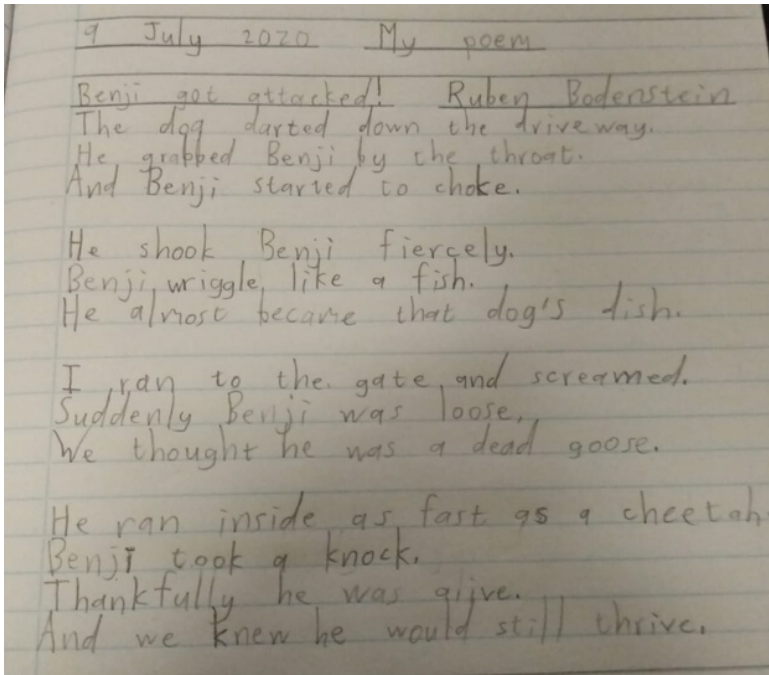 9 July 2020 My poem
Benji got attacked! Ruben Bodenstein
The dog darted down the driveway.
He grabbed Benji by the throat.
And Benji started to choke.
He shook Benji fiercely.
Benji wriggle like a fish.
He almost became that dog's dish.
I ran to the gate and screamed.
Suddenly Benji was loose.
We thought he was a dead goose.
He ran inside as fast as a cheetah
Benji took a knock.
Thankfully he was alive.
And we knew he would still thrive.